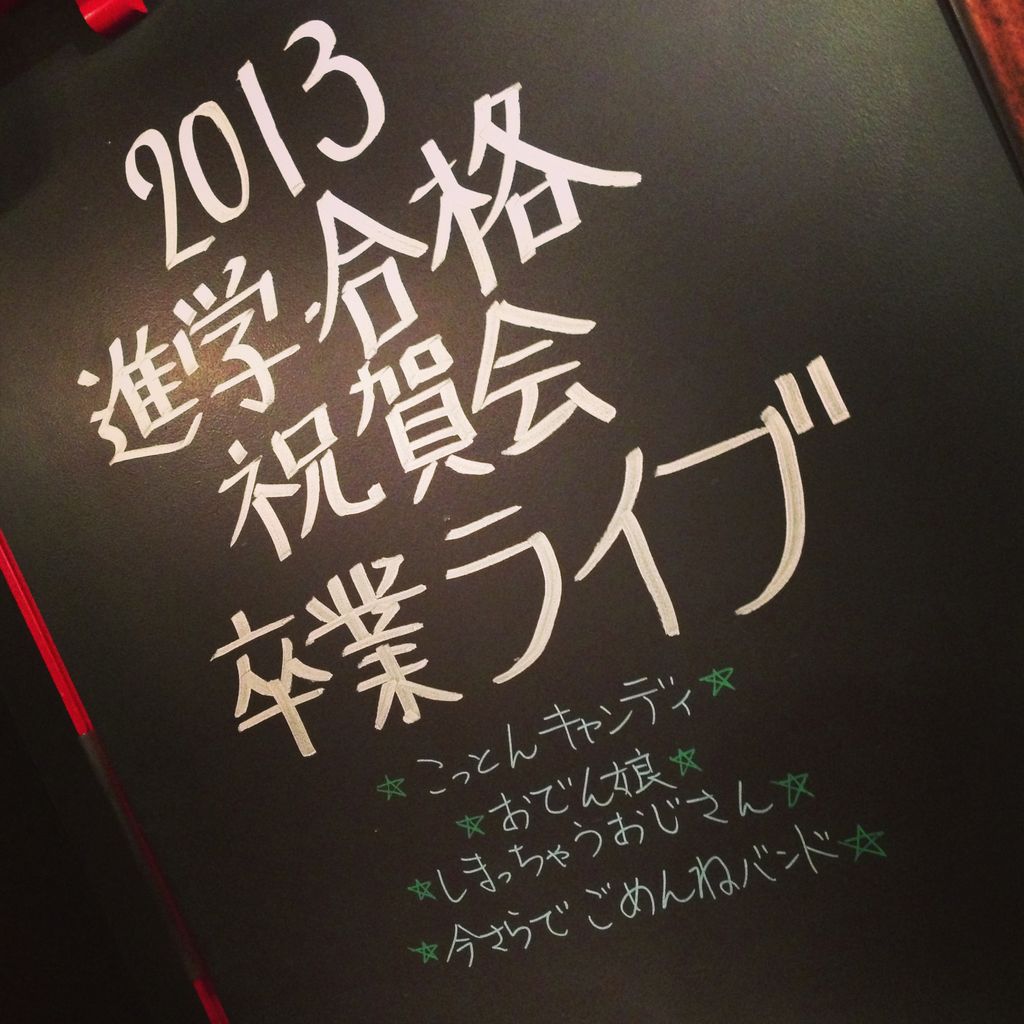 2013
進学・合格
祝賀会
卒業ライブ
☆こっとんキャンディ☆
☆おでん娘☆
☆しまっちゃうおじさん☆
☆今さらでごめんねバンド☆